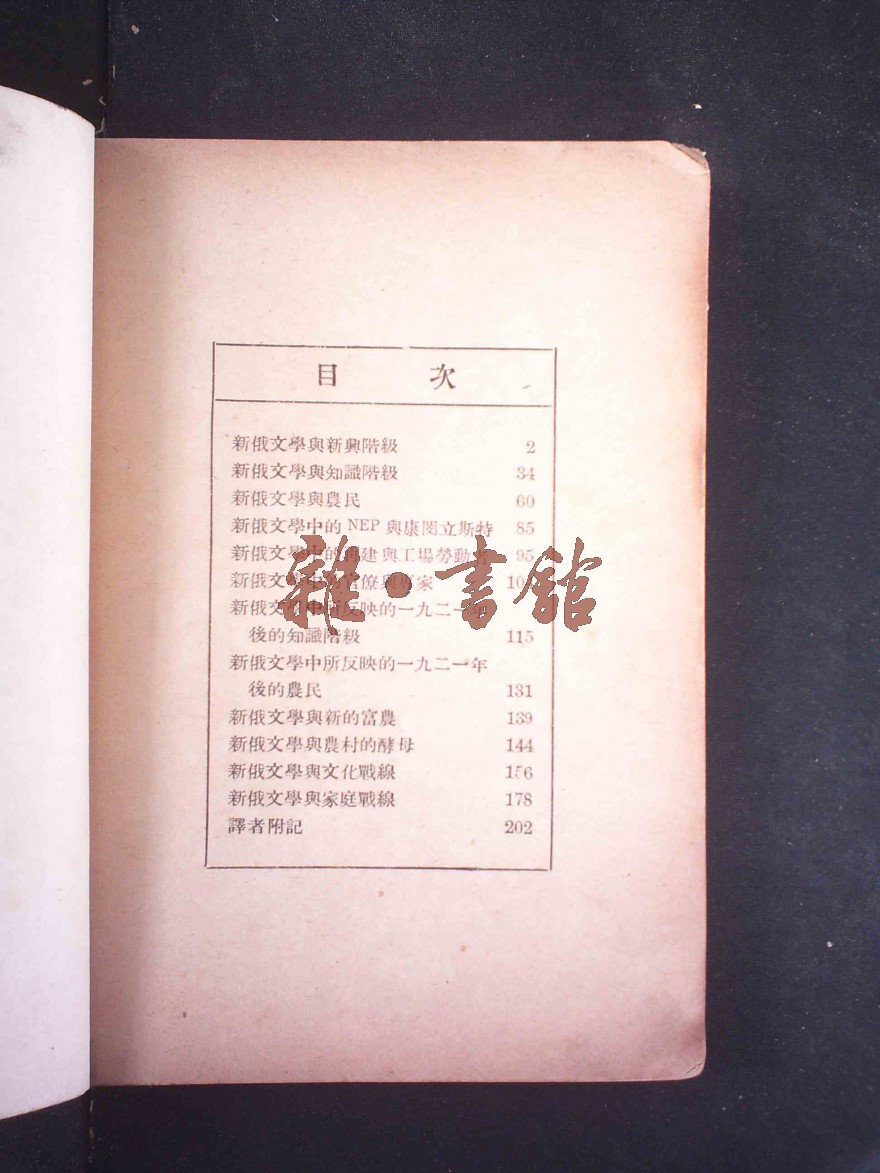 目 次
新俄文學與新興階級 2
新俄文學與知識階級 34
新俄文學與農民 60
新俄文學中的 NEP 與康閔立斯特 85
新俄文學中的再建與工場勞動者 95
新俄文學中的官僚與專家
新俄文學中所反映的一九二一年
後的知識階級 115
新俄文學中所反映的一九二一年
後的農民 131
新俄文學與新的富農 139
新俄文學與農村的酵母 144
新俄文學與文化戰線 156
新俄文學與家庭戰線 178
譯者附記 202
雜·書館